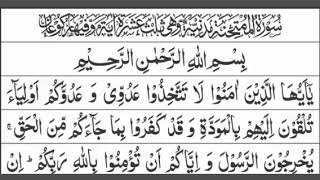 سُوْرَةُ الْمُمْتَحِنَةِ مَدَنِيَّةٌ وَّهِيَ ثَلٰثَ عَشْرَةَ اٰيَةً وَّفِيْهَا رُكُوْعَانِ
بِسْمِ اللهِ الرَّحْمٰنِ الرَّحِيْمِ
يٰۤاَيُّهَا الَّذِيْنَ اٰمَنُوْا لَا تَتَّخِذُوْا عَدُوِّيْ وَ عَدُوَّكُمْ اَوْلِيَآءَ
تُلْقُوْنَ اِلَيْهِمْ بِالْمَوَدَّةِ وَ قَدْ كَفَرُوْا بِمَا جَآءَكُمْ مِّنَ الْحَقِّ ۚ
يُخْرِجُوْنَ الرَّسُوْلَ وَ اِيَّاكُمْ اَنْ تُؤْمِنُوْا بِاللهِ رَبِّكُمْ ؕ اِنْ